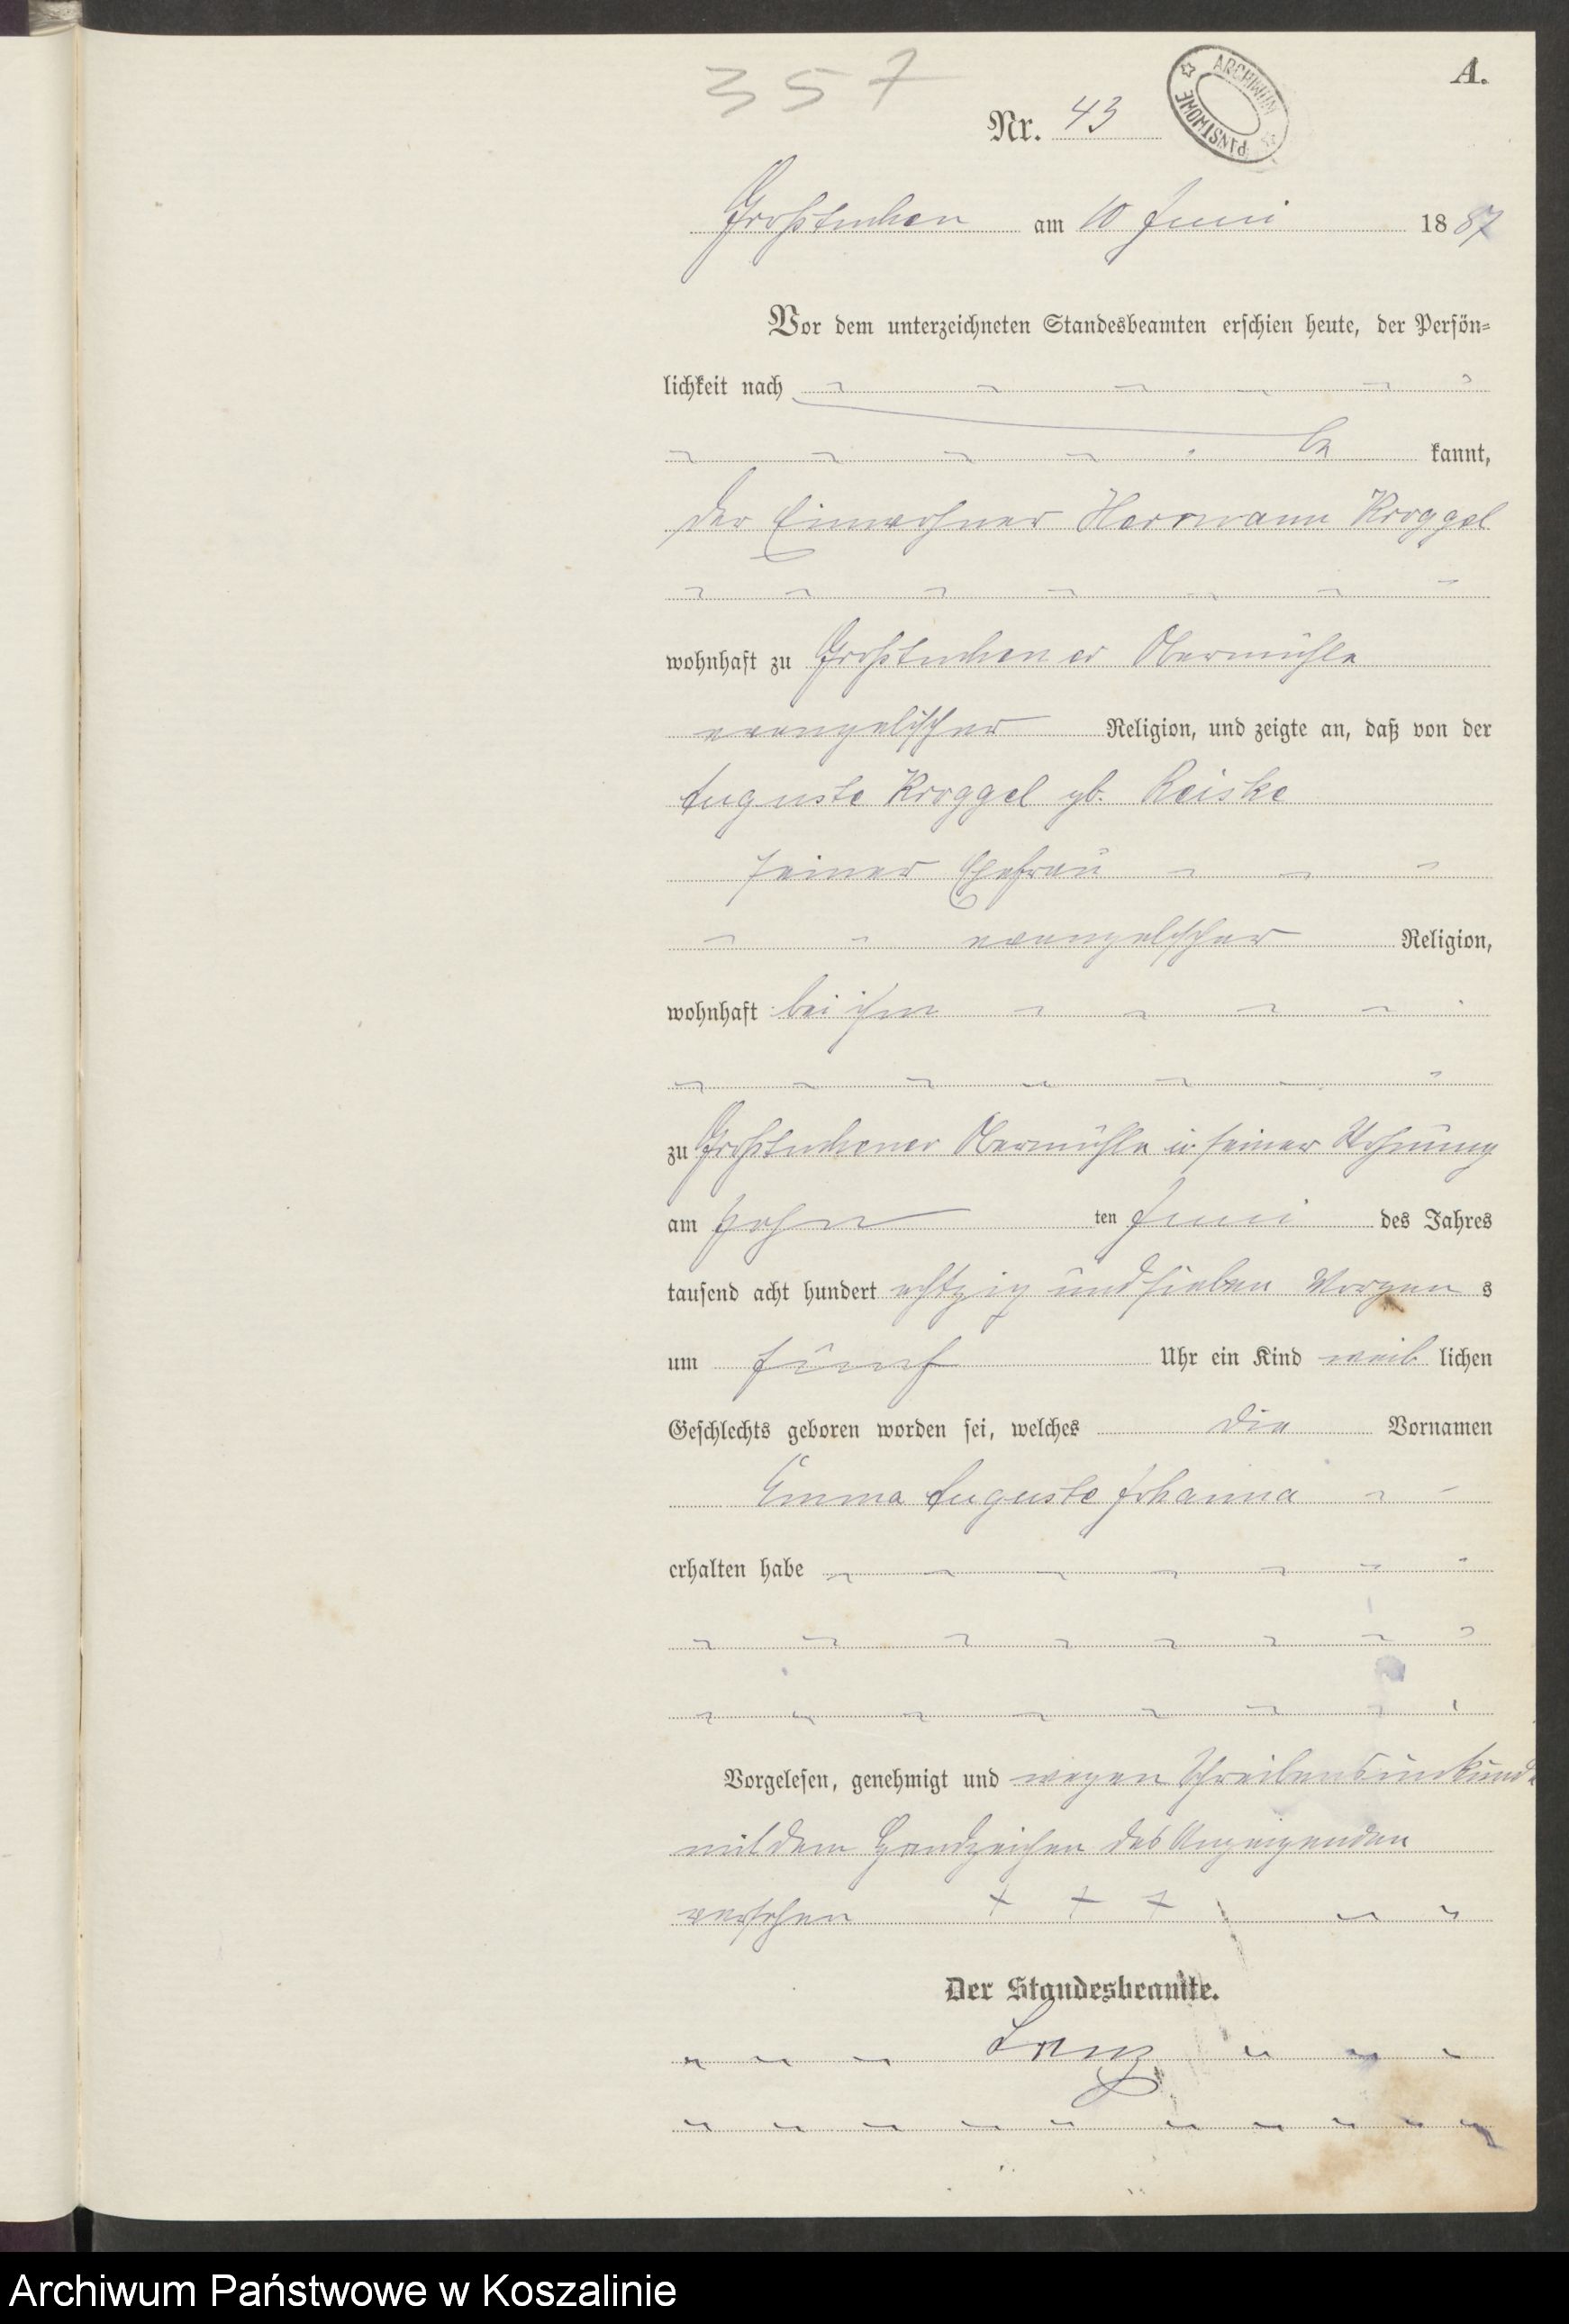 357
A.
Nr. 43
ARCHIWUM PAŃSTWOWE
Großtuchen am 10 Juni 1887
Vor dem unterzeichneten Standesbeamten erschien heute, der Persön=
lichkeit nach
be kannt,
der Einwohner Herrmann Kroggel
wohnhaft zu Großtuchener Obermühle
evangelischer Religion, und zeigte an, daß von der
Auguste Kroggel gb. Reiske
seiner Ehefrau
evangelischer Religion,
wohnhaft bei ihm
zu Großtuchener Obermühle in seiner Wohnung
am zehn ten Juni des Jahres
tausend acht hundert achtzig und sieben Morgen s
um fünf Uhr ein Kind weib lichen
Geschlechts geboren worden sei, welches die Vornamen
Emma Auguste Johanna
erhalten habe
Vorgelesen, genehmigt und wegen Schreibensunkunde
mit dem Handzeichen des Anzeigenden
versehen + + +
Der Standesbeamte.
Archiwum Państwowe w Koszalinie